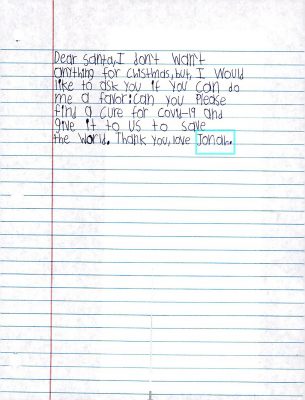 Dear Santa, I don't wan't
anything for Chistmas, but, I would
like to ask you if you can do
me a favor: Can you Please
find a cure for Covid-19 and
give it to us to save
the world. Thank you, love Jonah.